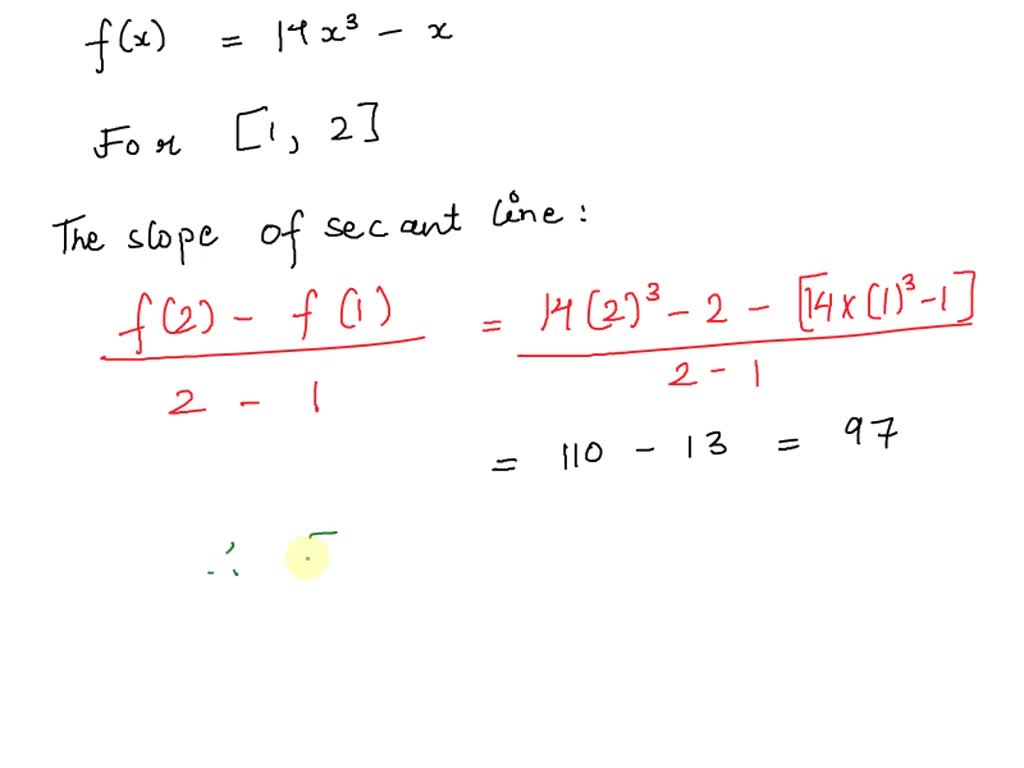 f(x) = 14x³ - x
For [1, 2]
The slope of secant line:
f(2) - f(1) / 2 - 1 = 14(2)³ - 2 - [14×(1)³-1] / 2 - 1
= 110 - 13 = 97
∴